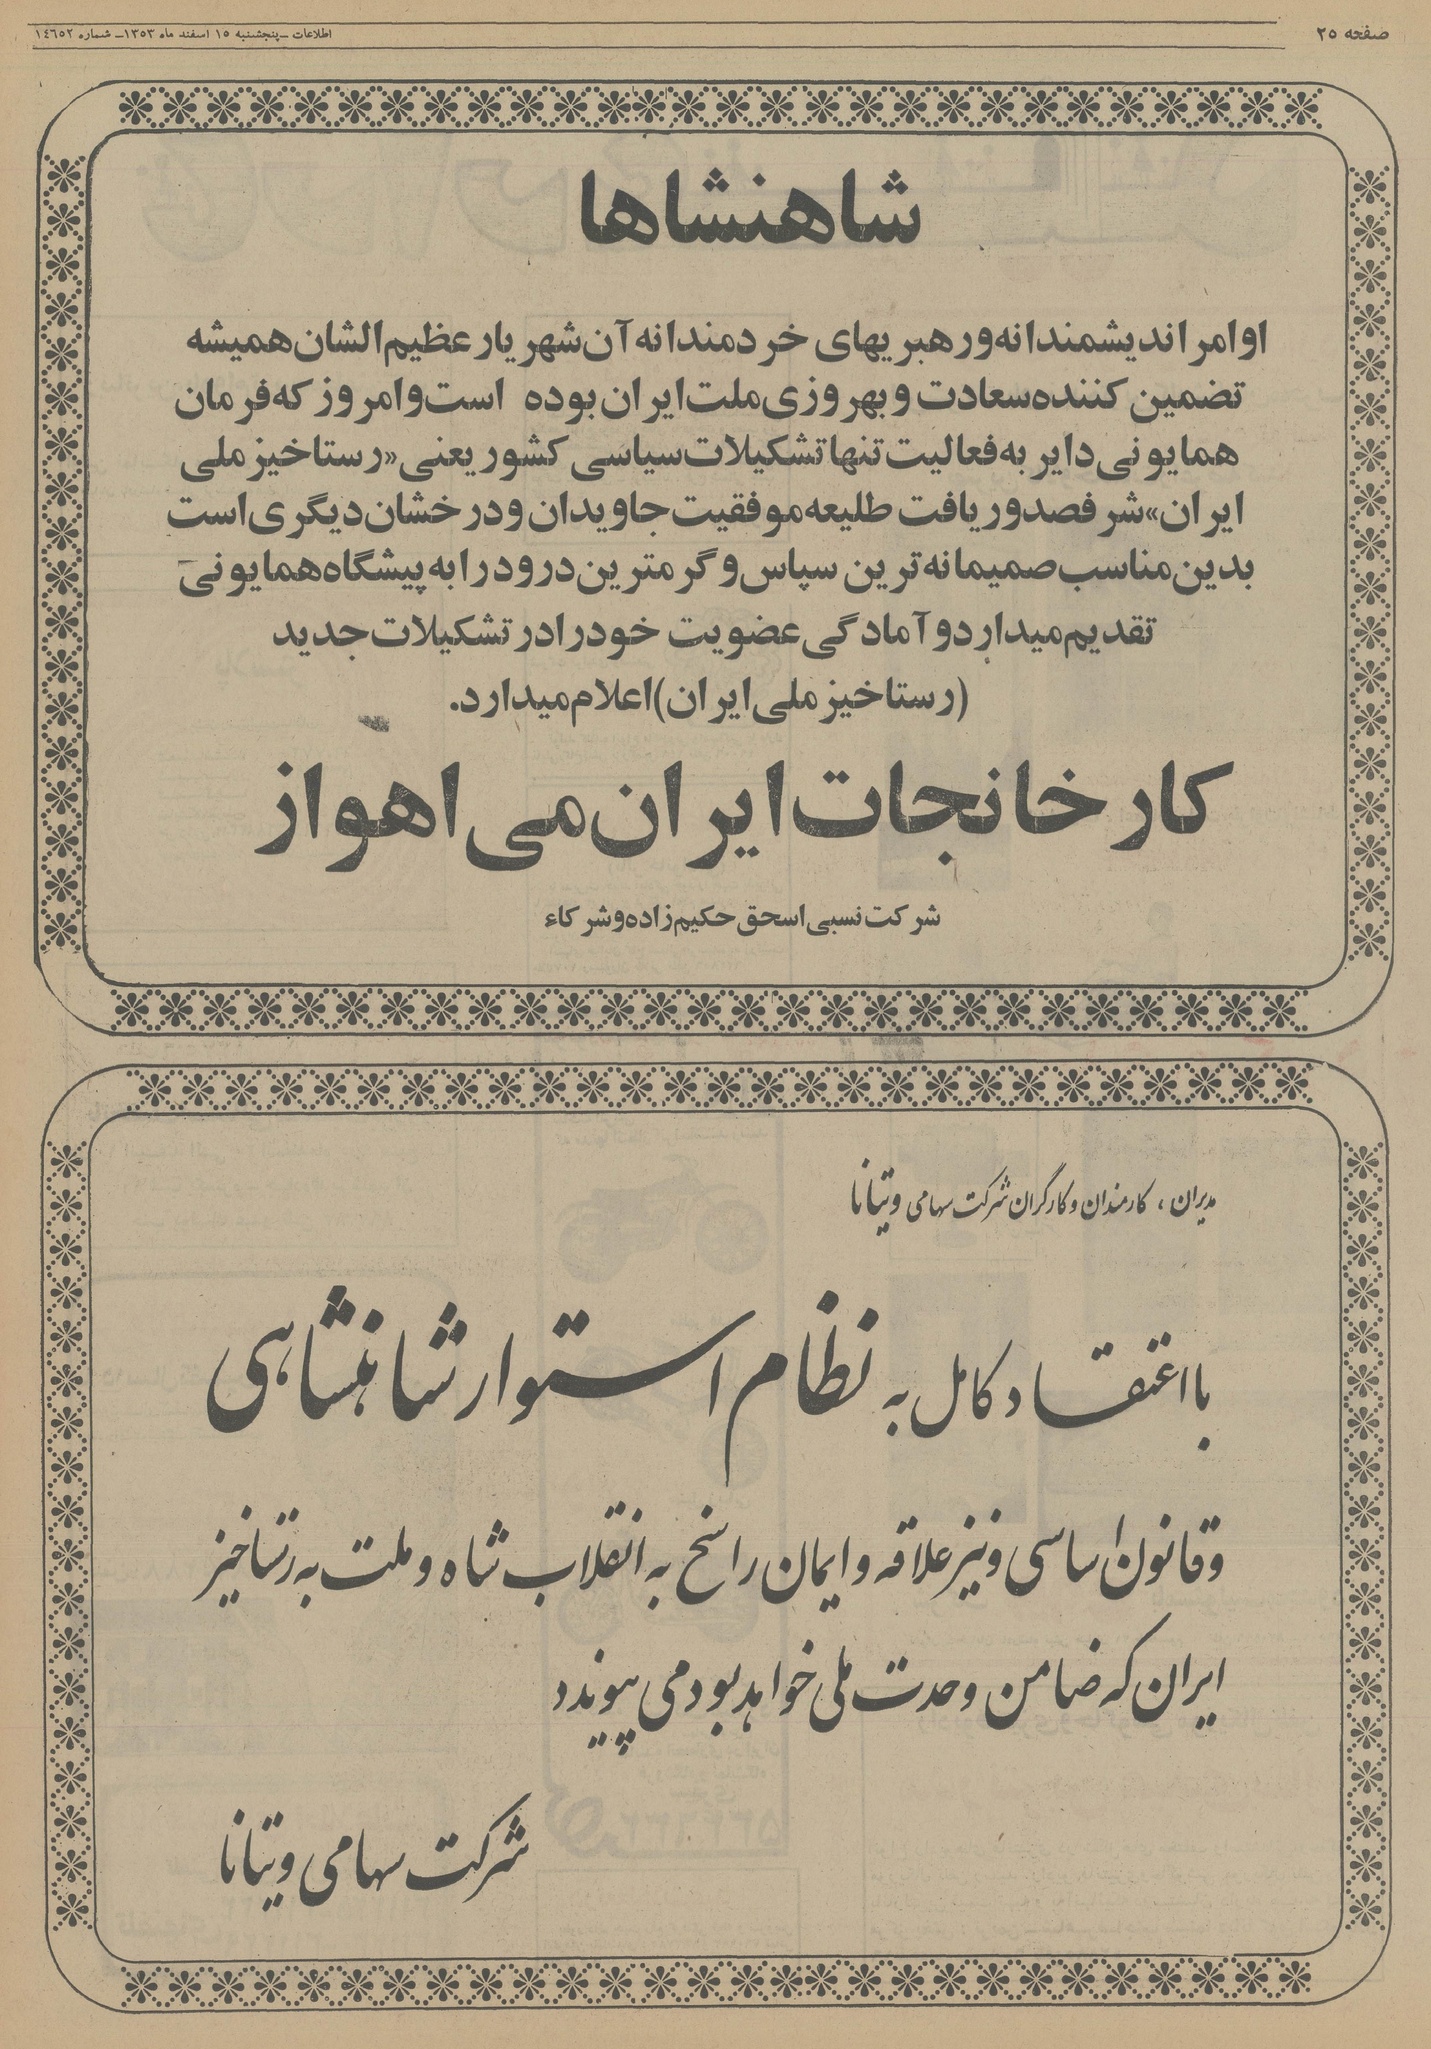 صفحه ۲۵
اطلاعات ـ پنجشنبه ۱۵ اسفند ماه ۱۳۵۳ـ شماره ۱٤٦٥۲
شاهنشاها
اوامر اندیشمندانه و رهبریهای خردمندانه آن شهریار عظیم الشان همیشه
تضمین کننده سعادت و بهروزی ملت ایران بوده است و امروز که فرمان
همایونی دایر به فعالیت تنها تشکیلات سیاسی کشور یعنی «رستاخیز ملی
ایران» شرفصدور یافت طلیعه موفقیت جاویدان و درخشان دیگری است
بدین مناسب صمیمانه ترین سپاس و گرمترین درود را به پیشگاه همایونی
تقدیم میدارد و آمادگی عضویت خود را در تشکیلات جدید
(رستاخیز ملی ایران) اعلام میدارد.
کارخانجات ایران می اهواز
شرکت نسبی اسحق حکیم زاده و شرکاء
مدیران ، کارمندان و کارگران شرکت سهامی ویتانا
با اعتقاد کامل به نظام استوار شاهنشاهی
و قانون اساسی و نیز علاقه و ایمان راسخ به انقلاب شاه و ملت به رستاخیز
ایران که ضامن وحدت ملی خواهد بود می پیوندد
شرکت سهامی ویتانا